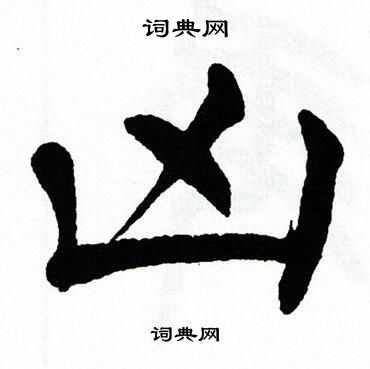 词典网
凶
词典网